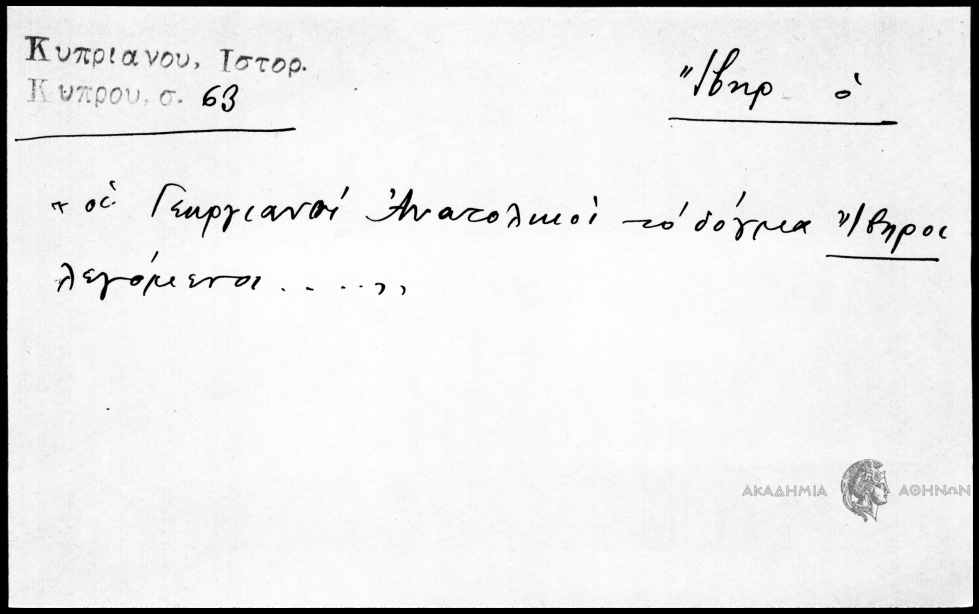 Κυπριανου, Ιστορ.
Κυπρου, σ. 63
Ἴβηρ ὁ
"οἱ Γεωργιανοί Ἀνατολικοί τό δόγμα Ἴβηροι
λεγόμενοι......"
ΑΚΑΔΗΜΙΑ ΑΘΗΝΩΝ